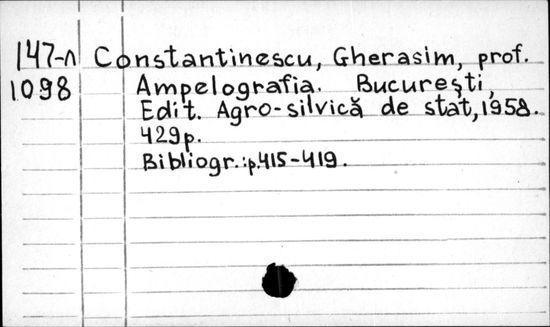 147-л Constantinescu, Gherasim, prof.
1098 Ampelografia. Bucureşti,
Edit. Agro-silvică de stat, 1958.
429p.
Bibliogr.: p.415-419.